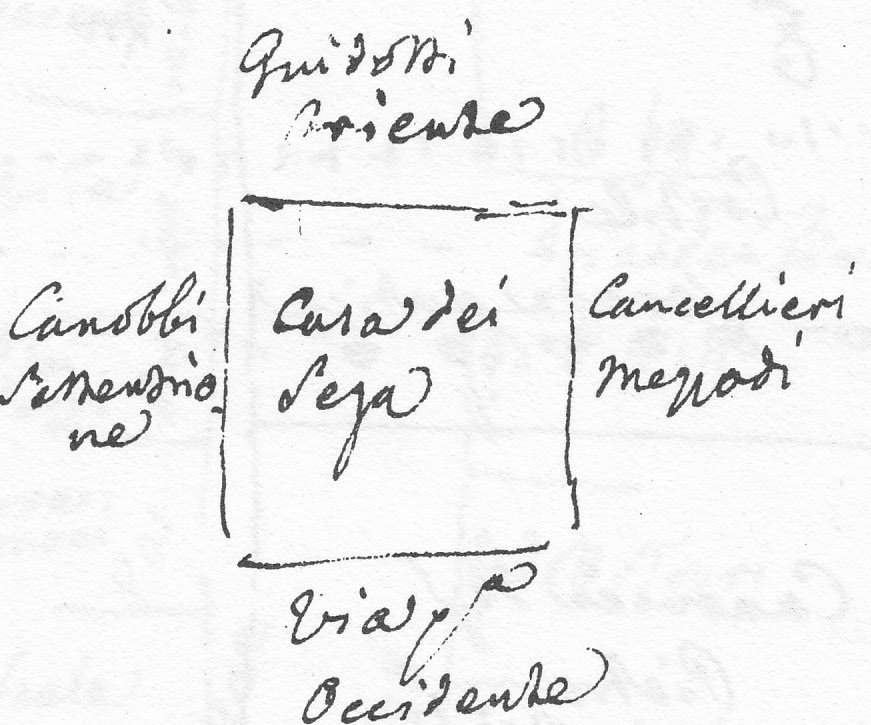 Guidotti
Oriente
Canobbi
Settentrio
ne
Casa dei
Sega
Cancellieri
Mezzodi
Via
Occidente